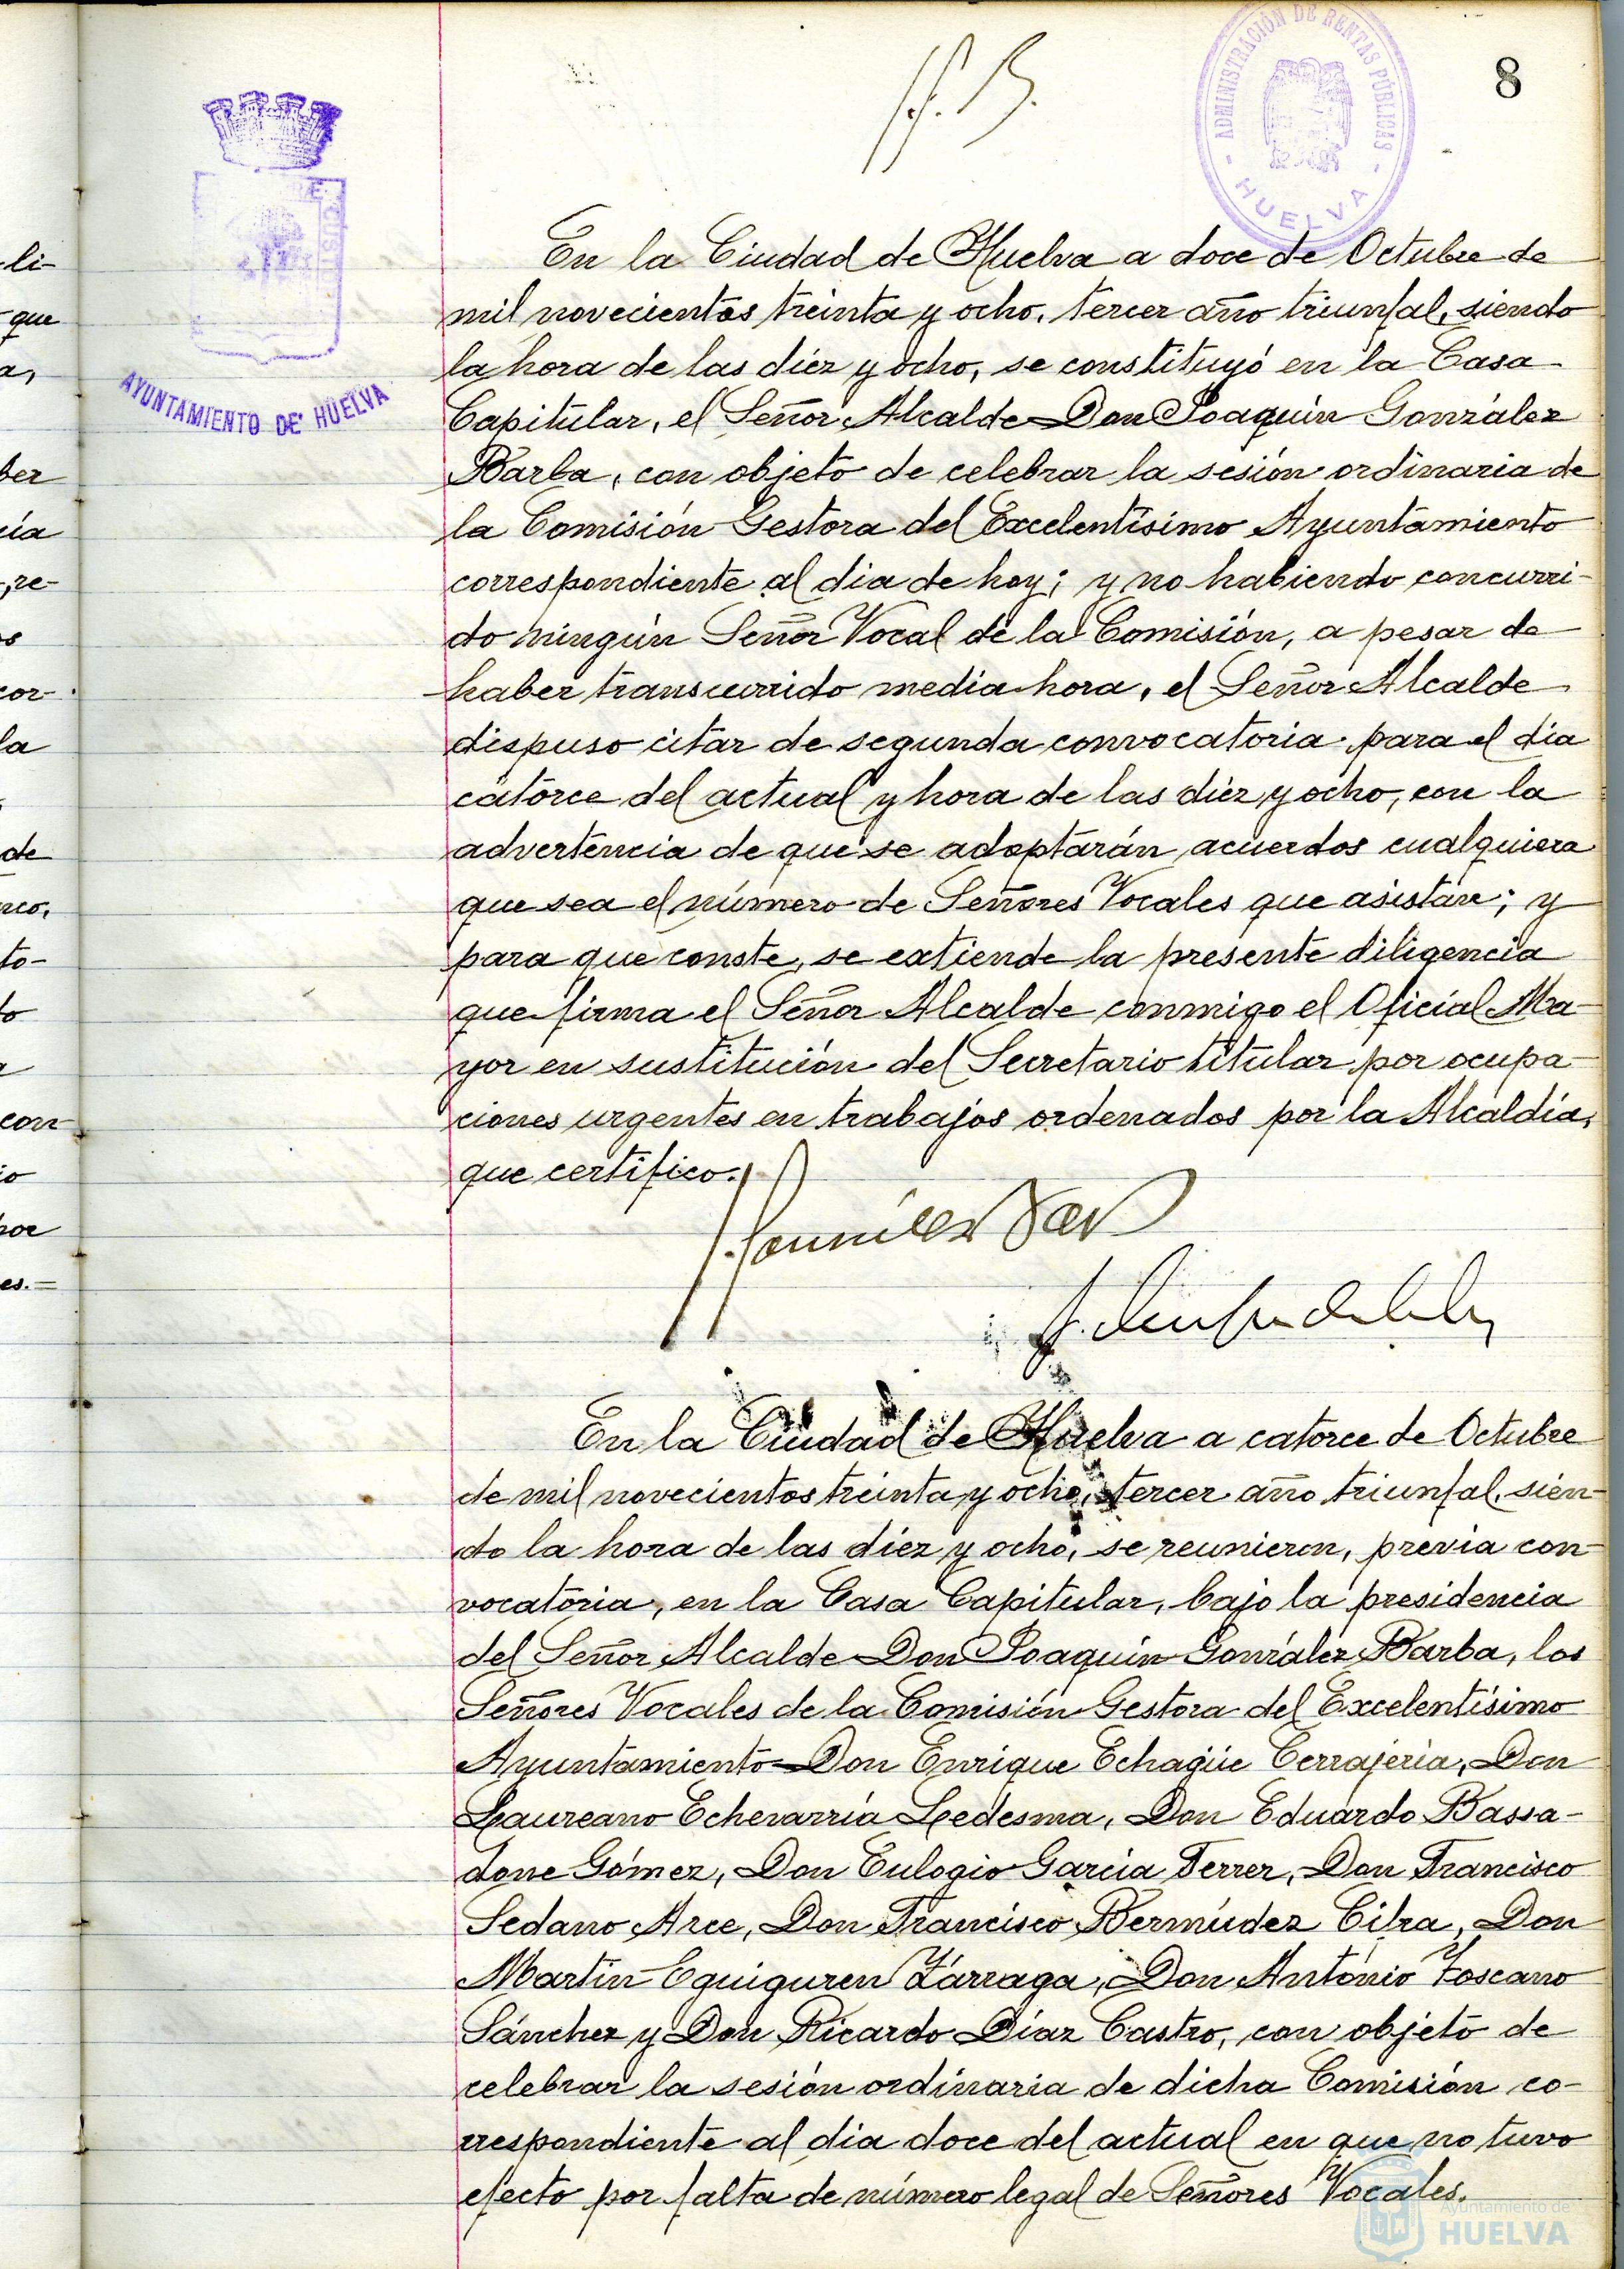 8
ADMINISTRACIÓN DE RENTAS PÚBLICAS
HUELVA
AYUNTAMIENTO DE HUELVA
En la Ciudad de Huelva a doce de Octubre de
mil novecientos treinta y ocho, tercer año triunfal, siendo
la hora de las diez y ocho, se constituyó en la Casa
Capitular, el Señor Alcalde Don Joaquín González
Barba, con objeto de celebrar la sesión ordinaria de
la Comisión Gestora del Excelentísimo Ayuntamiento
correspondiente al dia de hoy; y no habiendo concurri-
do ningún Señor Vocal de la Comisión, a pesar de
haber transcurrido media hora, el Señor Alcalde
dispuso citar de segunda convocatoria para el dia
catorce del actual y hora de las diez y ocho, con la
advertencia de que se adoptarán acuerdos cualquiera
que sea el número de Señores Vocales que asistan; y
para que conste, se extiende la presente diligencia
que firma el Señor Alcalde conmigo el Oficial Ma-
yor en sustitución del Secretario titular por ocupa-
ciones urgentes en trabajos ordenados por la Alcaldía,
que certifico.
En la Ciudad de Huelva a catorce de Octubre
de mil novecientos treinta y ocho, tercer año triunfal, sien-
do la hora de las diez y ocho, se reunieron, previa con-
vocatoria, en la Casa Capitular, bajo la presidencia
del Señor Alcalde Don Joaquín González Barba, los
Señores Vocales de la Comisión Gestora del Excelentísimo
Ayuntamiento Don Enrique Echagüe Cerrajería, Don
Laureano Echevarría Ledesma, Don Eduardo Bassa-
done Gómez, Don Eulogio García Ferrer, Don Francisco
Sedano Arce, Don Francisco Bermúdez Cilra, Don
Martín Eguiguren Zárraga, Don Antonio Toscano
Sánchez y Don Ricardo Díaz Castro, con objeto de
celebrar la sesión ordinaria de dicha Comisión co-
rrespondiente al dia doce del actual en que no tuvo
efecto por falta de número legal de Señores Vocales.
Ayuntamiento de
HUELVA
li-
que
a,
ber
cía
re-
cor-
la
de
to-
con-
es.=